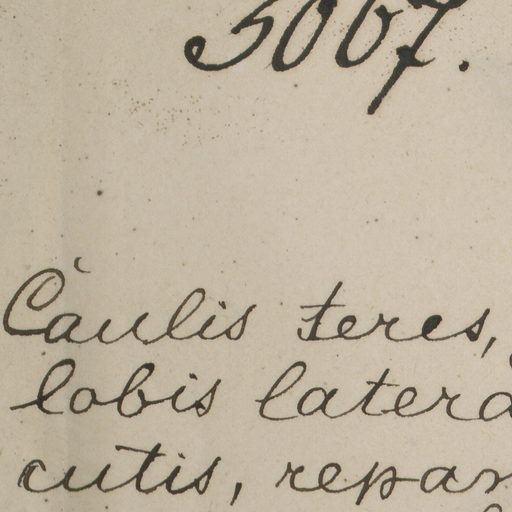 5067.
Caulis teres,
lobis latera
cutis, repan